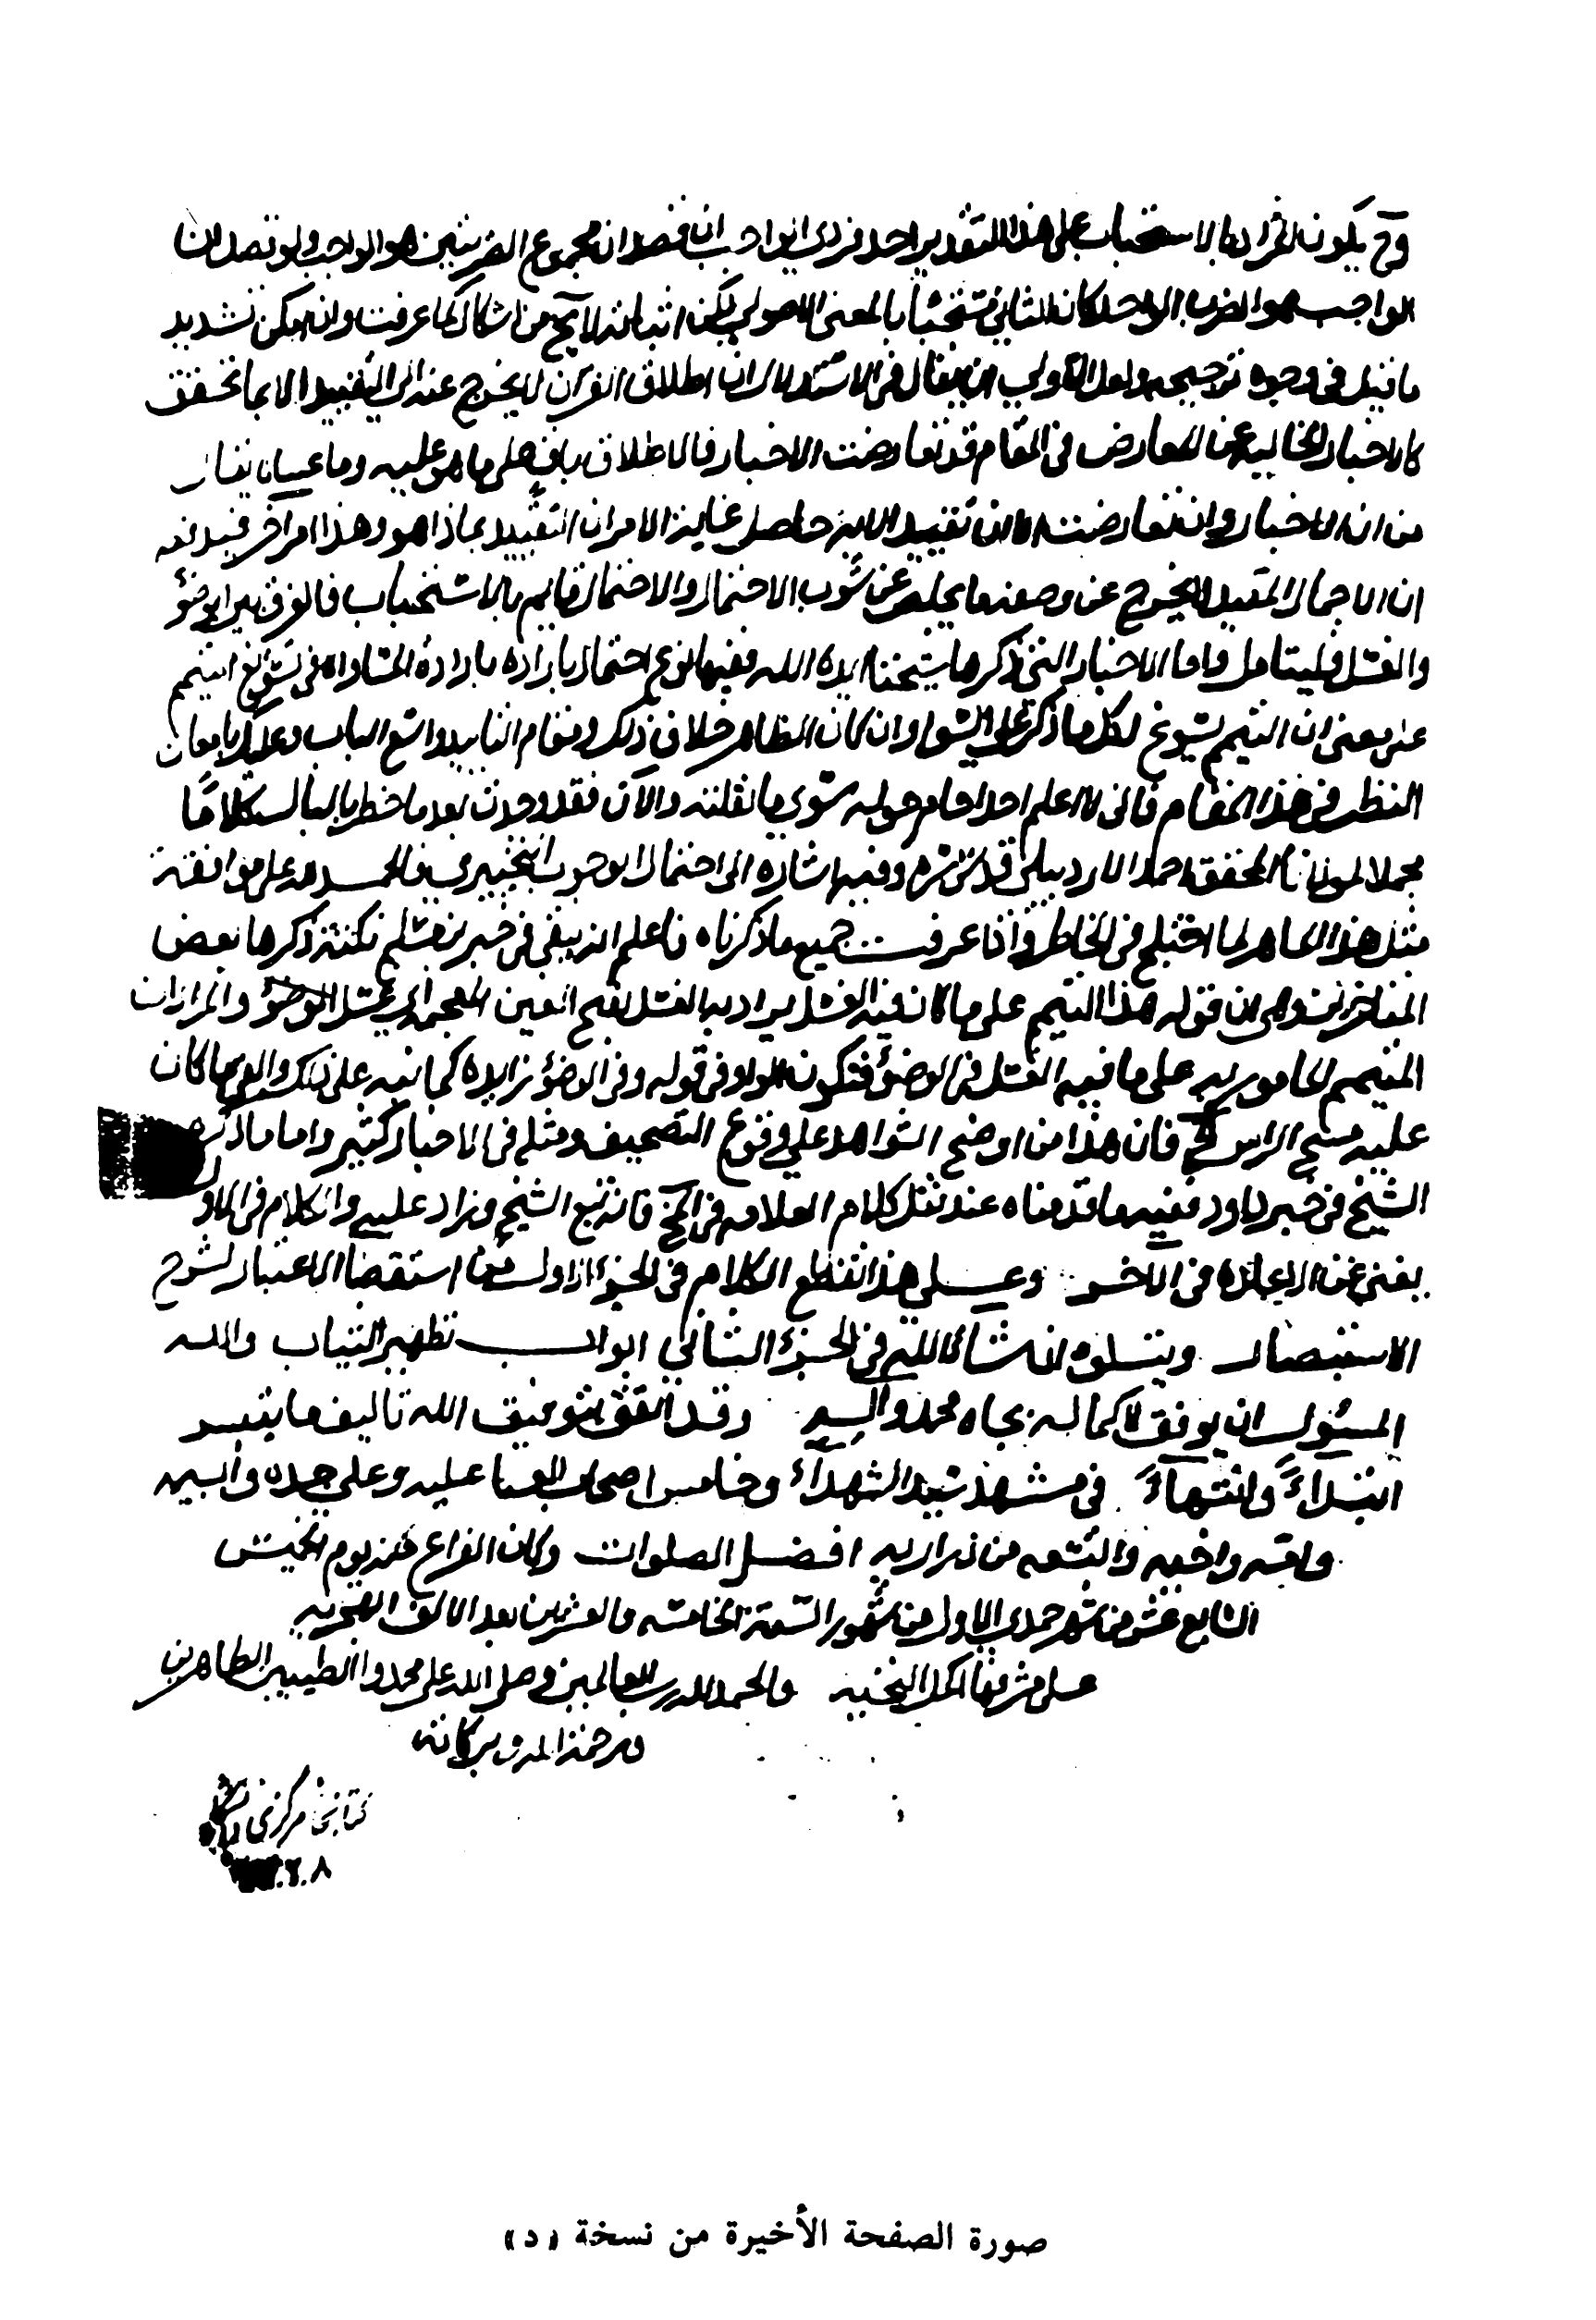 وح يكون المراد بالاستحباب على هذا التقدير احد فردي الواجب ان قصد ان مجموع الضربتين هو الواجب ولو قصد ان
الواجب هو الضرب الواحد كان الثاني مستحبا بالمعنى الاصولي لكن اثباته لا يخ من اشكال كما عرفت وان امكن تسديد
ما قيل في وجوه ترجيحه ولعل الاولى ان يقال في الاستدلال ان اطلاق القرآن لا يخرج عنه الى التقييد الا بما تحقق
كالاخبار الخالية عن المعارض في المقام قد تعارضت الاخبار فالاطلاق باق على ما هو عليه وما عساه يقال
من ان الاخبار وان تعارضت الا ان تقييد الاية حاصل غاية الامر ان التقييد بماذا هو وهذا امر اخر فيدفعه
ان الاجمال المقيد لا يخرج عن وصفه ما يخلص عن شوب الاحتمال والاحتمال قايم بالاستحباب فالفرق بين الوضوء
والغسل فليتامل واما الاخبار التي ذكرها شيخنا ايده الله ففيها نوع احتمال بارادة المساواة في تسويغ التيمم
على معنى ان التيمم يسوغ لكل ما ذكر على السواء وان كان الظاهر خلاف ذلك ومقام التاييد واسع الباب وعليك بامعان
النظر في هذا المقام فاني لا اعلم احدا حام حوله سوى ما نقلته والان فقد وجدت بعد ما خطر بالبال كلاما
مجملا لمولانا المحقق احمد الاردبيلي قدس سره وفيه اشارة الى احتمال الوجوب التخييري فالحمد لله على موافقة
مثل هذا الماهر لما اختلج في الخاطر واذا عرفت جميع ما ذكرناه فاعلم انه يبقى في خبر بن مسلم نكتة ذكرها بعض
المتاخرين وهي ان قوله هذا التيمم على ما كان فيه الغسل يراد به الغسل بفتح الغين المعجمة اي غسل الوضوء والمراد ان
التيمم المامور به على ما فيه الغسل في الوضوء فتكون الواو في قوله وفي الوضوء زايدة كما نبه على ذلك والغي ما كان
عليه مسح الراس الخ فان هذا من اوضح الشواهد على وقوع التصحيف ومثله في الاخبار كثير واما ما ذكره
الشيخ في خبر داود ففيه ما قدمناه عند نقل كلام العلامة في المخ فانه تبع الشيخ وزاد عليه والكلام في الاول
يغني عن الاعادة في الاخر وعلى هذا انقطع الكلام في الجزء الاول من استقصا الاعتبار لشرح
الاستبصار ويتلوه ان شا الله في الجزء الثاني ابواب تطهير الثياب والله
المسئول ان يوفق لاكماله بجاه محمد واله وقد اتفق بتوفيق الله تاليف ما تيسر
ابتداءً وانتهاءً في مشهد سيد الشهداء وخامس اصحاب العبا عليه وعلى جده وابيه
وامه واخيه والتسعه من ذراريه افضل الصلوات وكان الفراغ منه يوم الخميس
السابع عشر من شهر جمدى الاول من شهور السنة الخامسه والعشرين بعد الالف الهجريه
على مشرفها اكمل التحيه والحمد لله رب العالمين وصلى الله على محمد واله الطيبين الطاهرين
ورحمة الله وبركاته
كتابخانه مركزى
صورة الصفحة الأخيرة من نسخة «د»